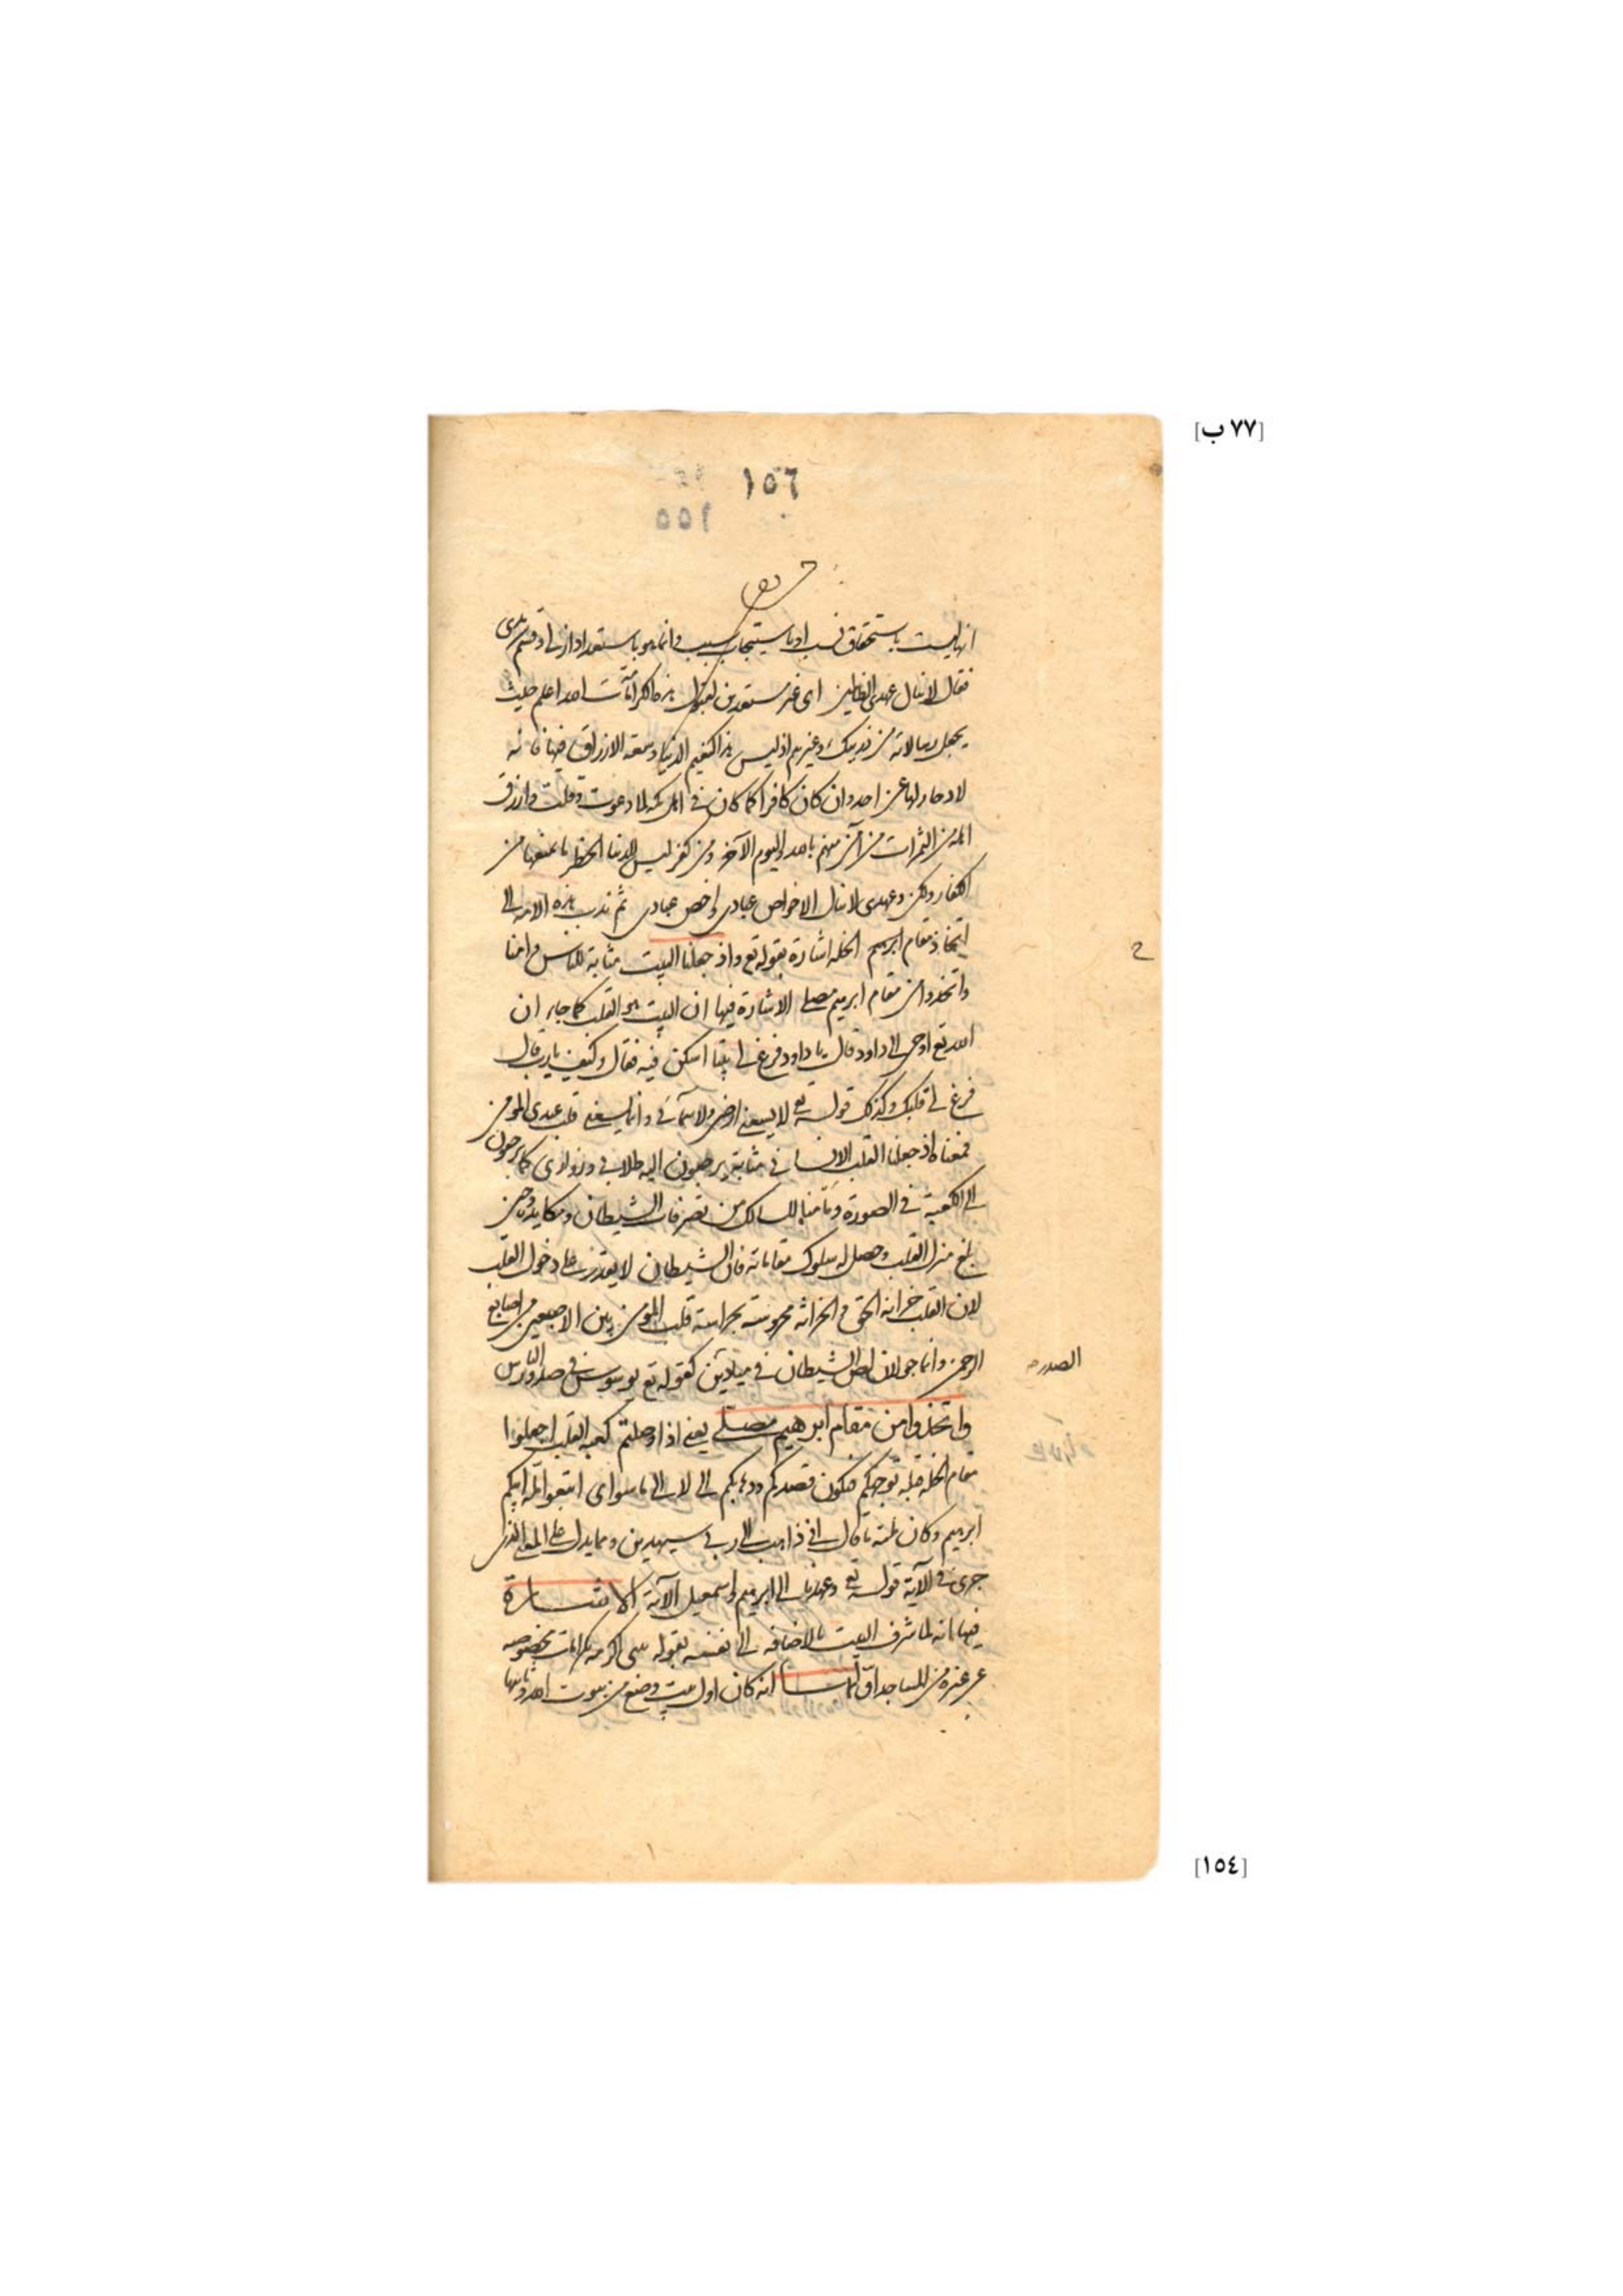 [٧٧ ب]
١٥٦
١٥٥
انها ليست باستحقاق نسب او باستيجاب سبب وانما هو باستعداد ازلى او قسم
فقال لا ينال عهدى الظالمين اى غير مستعدين لقبول هذه الكرامات الله اعلم حيث
يجعل رسالاته من ذريتك وغيرهم اذ ليس هذا كنعيم الدنيا وسعة الارزاق فيها فانه
لا ادخار لها عن احد وان كان كافرا كما كان فى اهل مكة لما دعوت وقلت وارزق
اهله من الثمرات من آمن منهم بالله واليوم الآخر ومن كفر ليس للدنيا الخطر ما يمنعها من
الكفار ولكن وعهدى لا ينال الا خواص عبادى واخص عبادى ثم ندب هذه الامة الى
اتخاذ مقام ابرهيم الخلة اشارة بقوله تع واذ جعلنا البيت مثابة للناس وامنا
واتخذوا من مقام ابرهيم مصلى الاشارة فيها ان البيت هو القلب كما جاء ان
الله تع اوحى الى داود قال يا داود فرغ لى بيتا اسكن فيه فقال وكيف يا رب قال
فرغ لى قلبك وكذلك قوله تع لا يسعنى ارضى ولا سمآئى وانما يسعنى قلب عبدى المومن
فمعناه اذ جعلنا القلب الانسانى مثابة يرجعون اليه طلابى وزوارى كما يرجعون
الى الكعبة فى الصورة وتامنا للسالك من تصرفات الشيطان ومكايده حين
بلغ منزل القلب وحصل له سلوك مقاماته فان الشيطان لا يقدر على دخول القلب
لان القلب خزانة الحق والخزانة محروسة بحراسة قلب المومن بين الاصبعين من اصابع
الرحمن وانما جولان لص الشيطان فى ميادين كقوله تع يوسوس فى صدور الناس
الصدر
واتخذوا من مقام ابرهيم مصلى يعنى اذا وصلتم كعبة القلب اجعلوا
مقام الخلة قبلة توجهكم فيكون قصدكم وذهابكم الى لا الى ما سواى اتبعوا ملة ابيكم
ابرهيم وكان ملته ما قال انى ذاهب الى ربى سيهدين ومما يدل على المعنى الذى
جرى فى الآية قوله تع وعهدنا الى ابرهيم واسمعيل الآية الاشارة
فيها انه لما شرف البيت بالاضافة الى نفسه بقوله بيتى اكرمه بكرامات مخصوصة
عن غيره من المساجد اولها انه كان اول بيت وضع من بيوت الله وثانيها
[١٥٤]